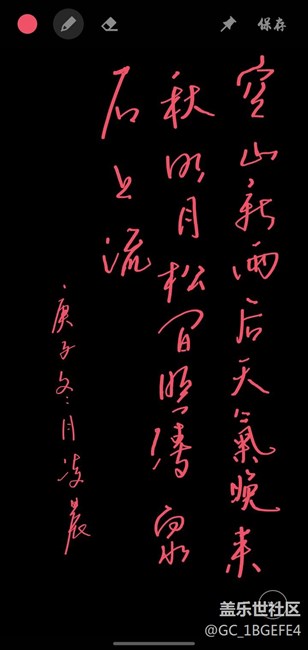 保存
空山新雨后天氣晚来
秋明月松间照清泉
石上流
庚子冬月凌晨
盖乐世社区
@GC_1BGEFE4